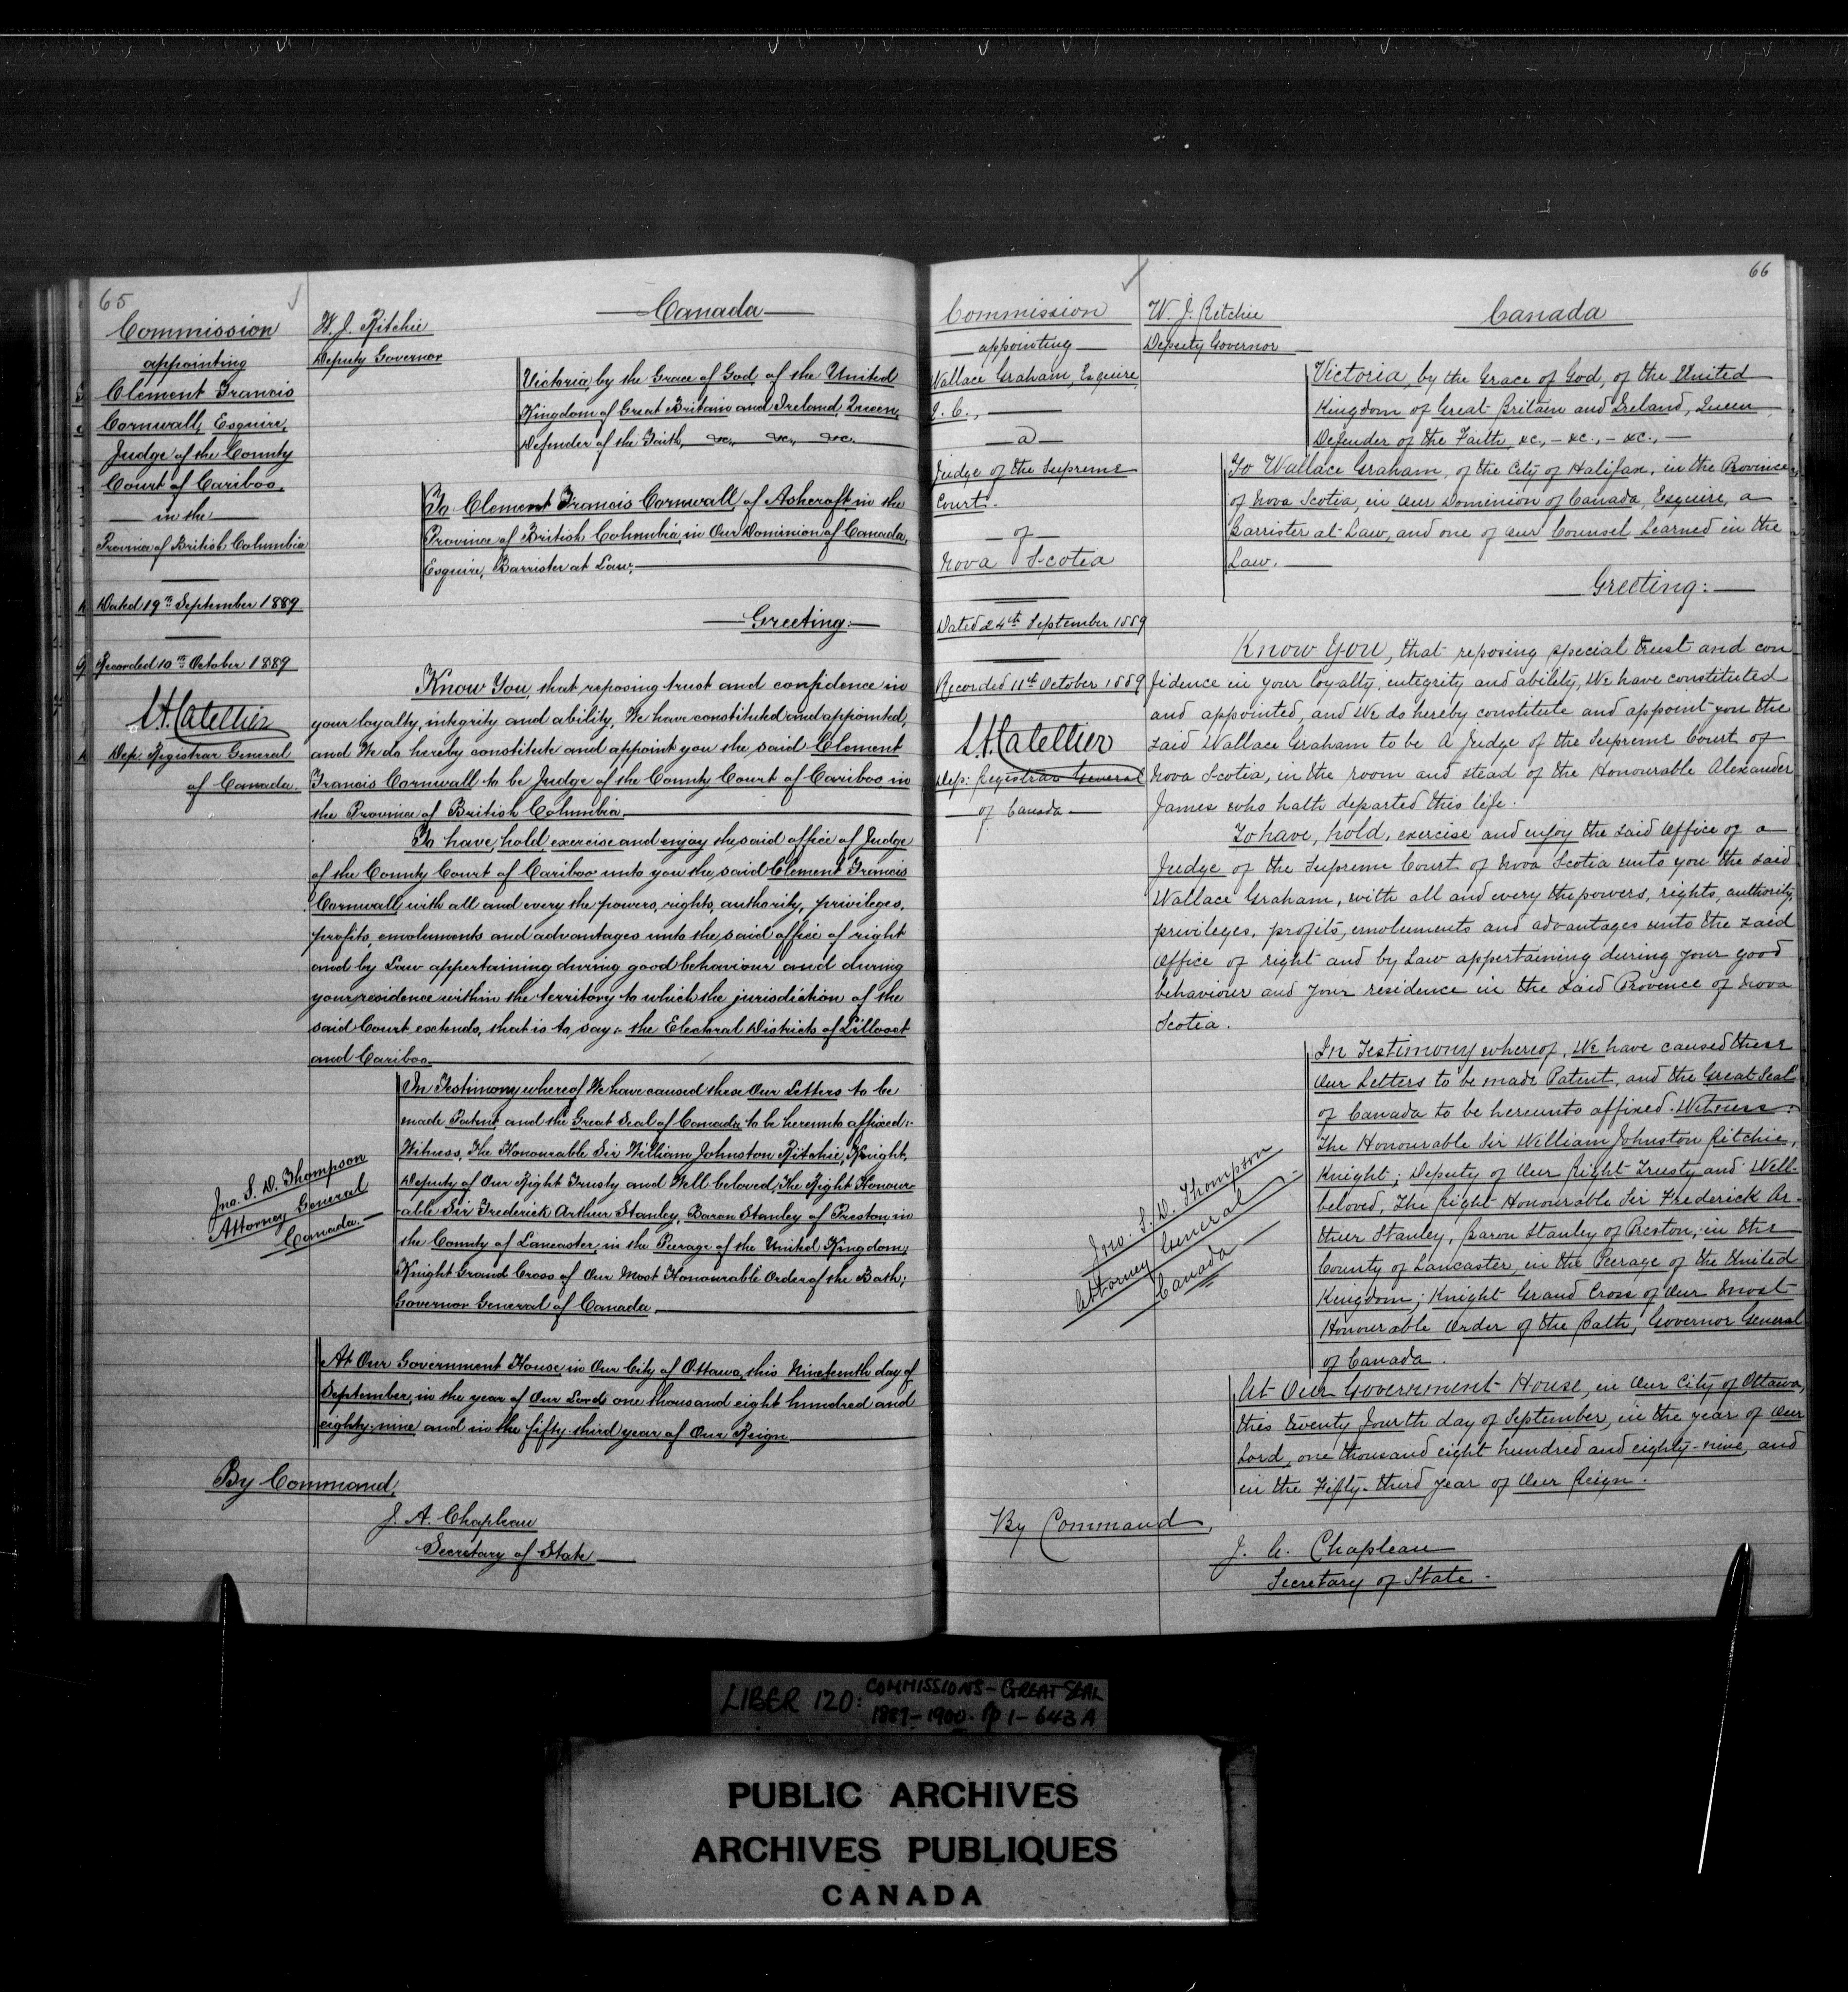 65
Commission
appointing
Clement Francis
Cornwall, Esquire,
Judge of the County
Court of Cariboo,
in the
Province of British Columbia
Dated 19th September 1889
Recorded 10th October 1889
L.A. Catellier
Dep: Registrar General
of Canada.
W. J. Ritchie
Deputy Governor
Canada
Victoria, by the Grace of God, of the United
Kingdom of Great Britain and Ireland Queen,
Defender of the Faith, &c., &c., &c.
To Clement Francis Cornwall, of Ashcroft, in the
Province of British Columbia, in Our Dominion of Canada,
Esquire, Barrister at Law,
Greeting:
Know You, that reposing trust and confidence in
your loyalty, integrity and ability, We have constituted and appointed,
and We do hereby constitute and appoint you the said Clement
Francis Cornwall to be Judge of the County Court of Cariboo in
the Province of British Columbia
To have, hold, exercise and enjoy the said office of Judge
of the County Court of Cariboo unto you the said Clement Francis
Cornwall, with all and every the powers, rights, authority, privileges,
profits, emoluments and advantages unto the said office of right
and by Law appertaining during good behaviour and during
your residence within the territory to which the jurisdiction of the
said Court extends, that is to say:- the Electoral Districts of Lillooet
and Cariboo
In Testimony whereof We have caused these Our Letters to be
made Patent, and the Great Seal of Canada to be hereunto affixed:-
Witness, The Honourable Sir William Johnston Ritchie, Knight,
Deputy of Our Right Trusty and Well-beloved, The Right Honour-
able Sir Frederick Arthur Stanley, Baron Stanley of Preston, in
the County of Lancaster, in the Peerage of the United Kingdom,
Knight Grand Cross of Our Most Honourable Order of the Bath;
Governor General of Canada
Jno. S. D. Thompson
Attorney General
Canada.
At Our Government House, in Our City of Ottawa, this Nineteenth day of
September, in the year of Our Lord one thousand eight hundred and
eighty-nine and in the fifty-third year of Our Reign
By Command,
J. A. Chapleau
Secretary of State
66
Commission
appointing
Wallace Graham, Esquire
Q. C.,
a
Judge of the Supreme
Court
of
Nova Scotia
Dated 24th September 1889
Recorded 11th October 1889
L.A. Catellier
Dep: Registrar General
of Canada
W. J. Ritchie
Deputy Governor
Canada
Victoria, by the Grace of God, of the United
Kingdom of Great Britain and Ireland, Queen,
Defender of the Faith, &c., - &c., - &c., -
To Wallace Graham, of the City of Halifax, in the Province
of Nova Scotia, in Our Dominion of Canada, Esquire, a
Barrister-at-Law, and one of our Counsel Learned in the
Law.
Greeting:
Know You, that reposing special trust and con
fidence in your loyalty, integrity and ability, We have constituted
and appointed, and We do hereby constitute and appoint you the
said Wallace Graham to be a Judge of the Supreme Court of
Nova Scotia, in the room and stead of the Honourable Alexander
James who hath departed this life.
To have, hold, exercise and enjoy the said Office of a
Judge of the Supreme Court of Nova Scotia unto you the said
Wallace Graham, with all and every the powers, rights, authority,
privileges, profits, emoluments and advantages unto the said
Office of right and by Law appertaining during your good
behaviour and your residence in the said Province of Nova
Scotia.
In Testimony whereof, We have caused these
Our Letters to be made Patent, and the Great Seal
of Canada to be hereunto affixed. Witness:
The Honourable Sir William Johnston Ritchie,
Knight; Deputy of Our Right Trusty and Well-
beloved, The Right Honourable Sir Frederick Ar-
thur Stanley, Baron Stanley of Preston, in the
County of Lancaster, in the Peerage of the United
Kingdom; Knight Grand Cross of Our Most
Honourable Order of the Bath, Governor General
of Canada.
Jno. S. D. Thompson
Attorney General
Canada
At Our Government House, in Our City of Ottawa,
this twenty fourth day of September, in the year of Our
Lord, one thousand eight hundred and eighty-nine, and
in the Fifty-third year of Our Reign.
By Command,
J. A. Chapleau
Secretary of State.
LIBER 120: COMMISSIONS - GREAT SEAL
1889-1900. p 1-643A
PUBLIC ARCHIVES
ARCHIVES PUBLIQUES
CANADA